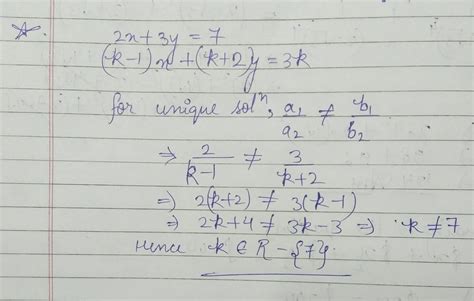 2x + 3y = 7
(k-1)x + (k+2)y = 3k
for unique solⁿ, a₁/a₂ ≠ b₁/b₂
⇒ 2/(k-1) ≠ 3/(k+2)
⇒ 2(k+2) ≠ 3(k-1)
⇒ 2k+4 ≠ 3k-3 ⇒ k ≠ 7
Hence k ∈ R - {7}.